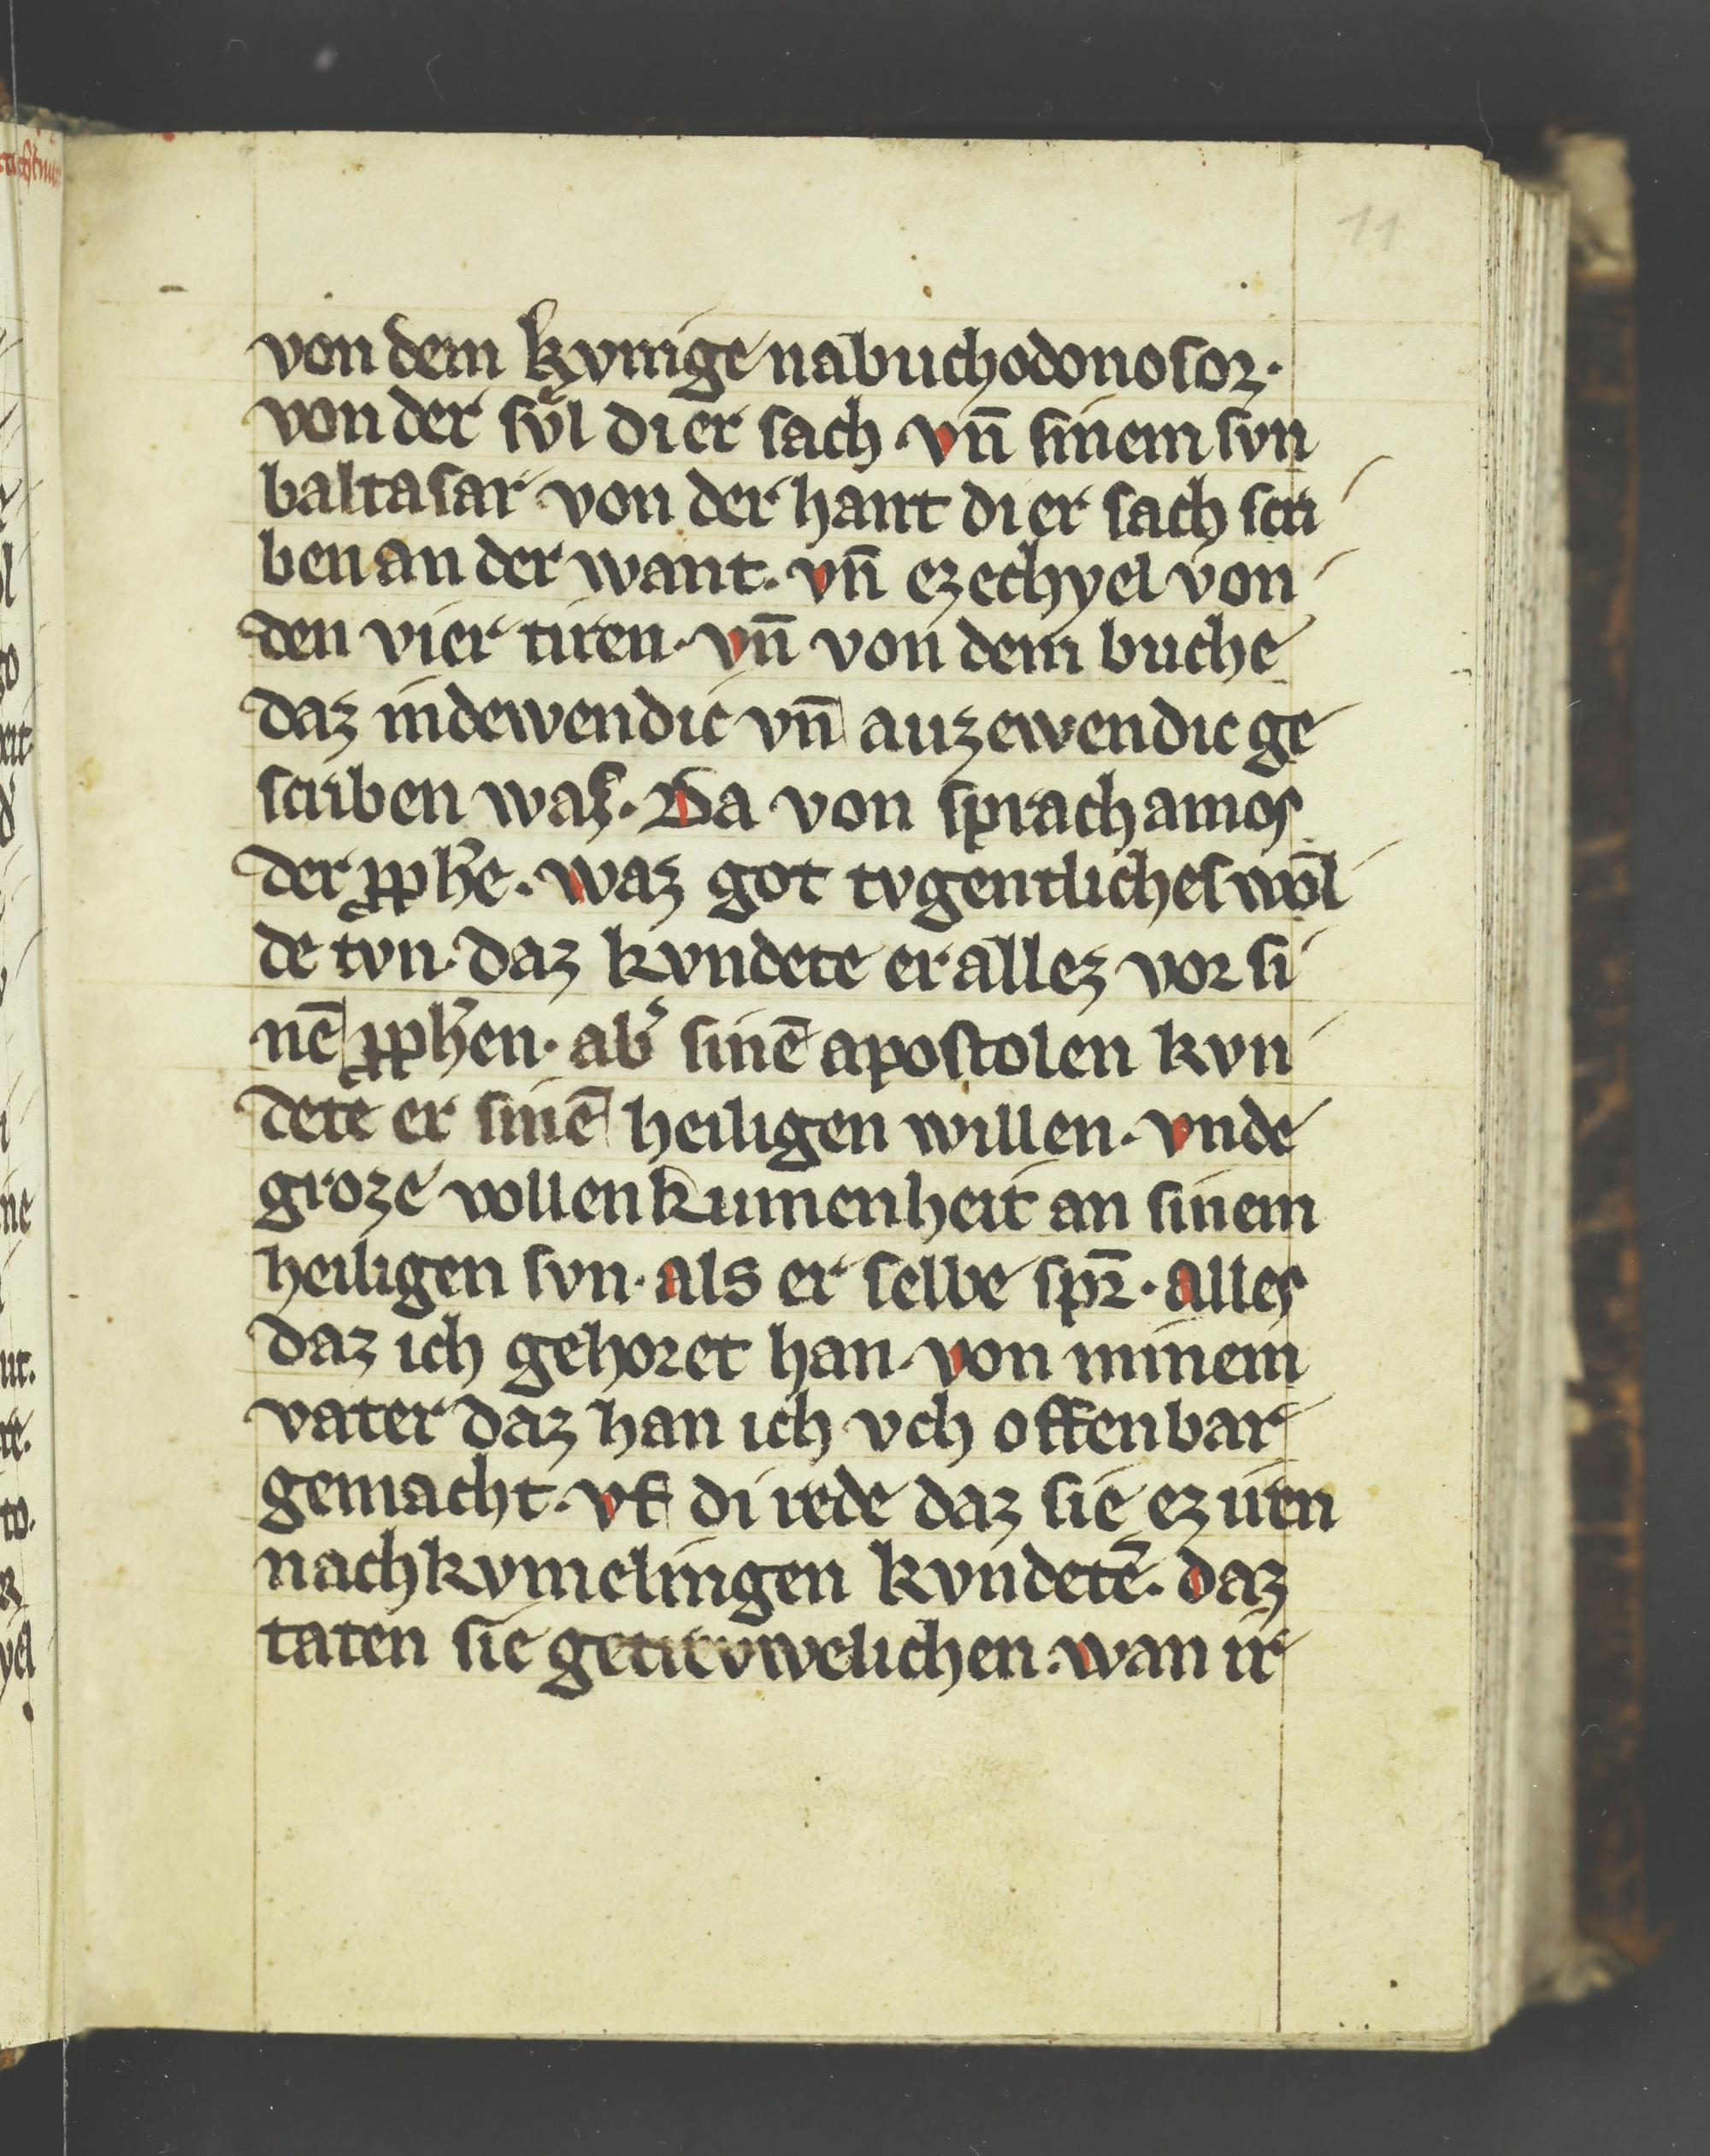 11
von dem kvnige nabuchodonosor·
von der svl di er sach · vn̄ sinem svn
baltasar von der hant di er sach scri
ben an der want. vn̄ ezechyel von
den vier tiren· vn̄ von dem buche
daz indewendic vn̄ auzewendic ge
scriben was. Da von sprach amos
der ꝓphe̅. waz got tvgentliches wol
de tvn· daz kvndete er allez vor si
nē ꝓphe̅n· ab' sinē apostolen kvn
dete er sinē heiligen willen. vnde
groze vollenkumenheit an sinem
heiligen svn· als er selbe spr̄· alles
daz ich gehoret han. von minem
vater daz han ich vch offenbar
gemacht. vf di rede daz sie ez iren
nachkvmelingen kvndetē. daz
taten sie getrevwelichen. wan ir